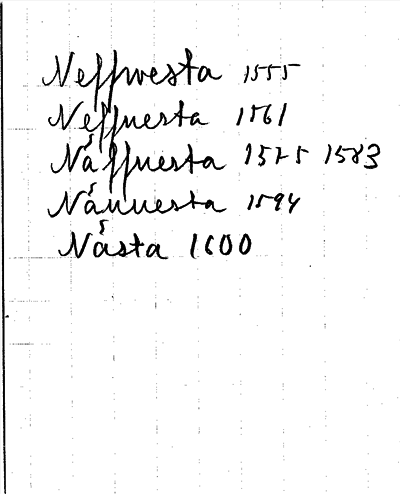 Neffwesta 1555
Neffuesta 1561
Näffuesta 1575 1583
Nänuesta 1594
Nästa 1600